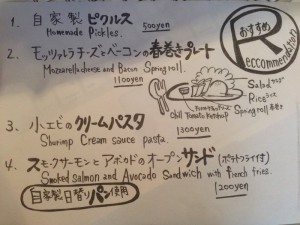 1. 自家製ピクルス 500yen
Homemade Pickles.
2. モッツァレラチーズとベーコンの春巻きプレート
Mozzarella cheese and Bacon Spring roll.
1100yen
おすすめ
R
reccommendation
Salad サラダ
Rice ライス
Spring roll 春巻き
Chili Tomato Ketchup
3. 小エビのクリームパスタ 1300yen
Shurimp Cream sauce pasta.
4. スモークサーモンとアボカドのオープンサンド (ポテトフライ付)
Smoked salmon and Avocado Sandwich with french fries.
自家製日替りパン使用 1200yen